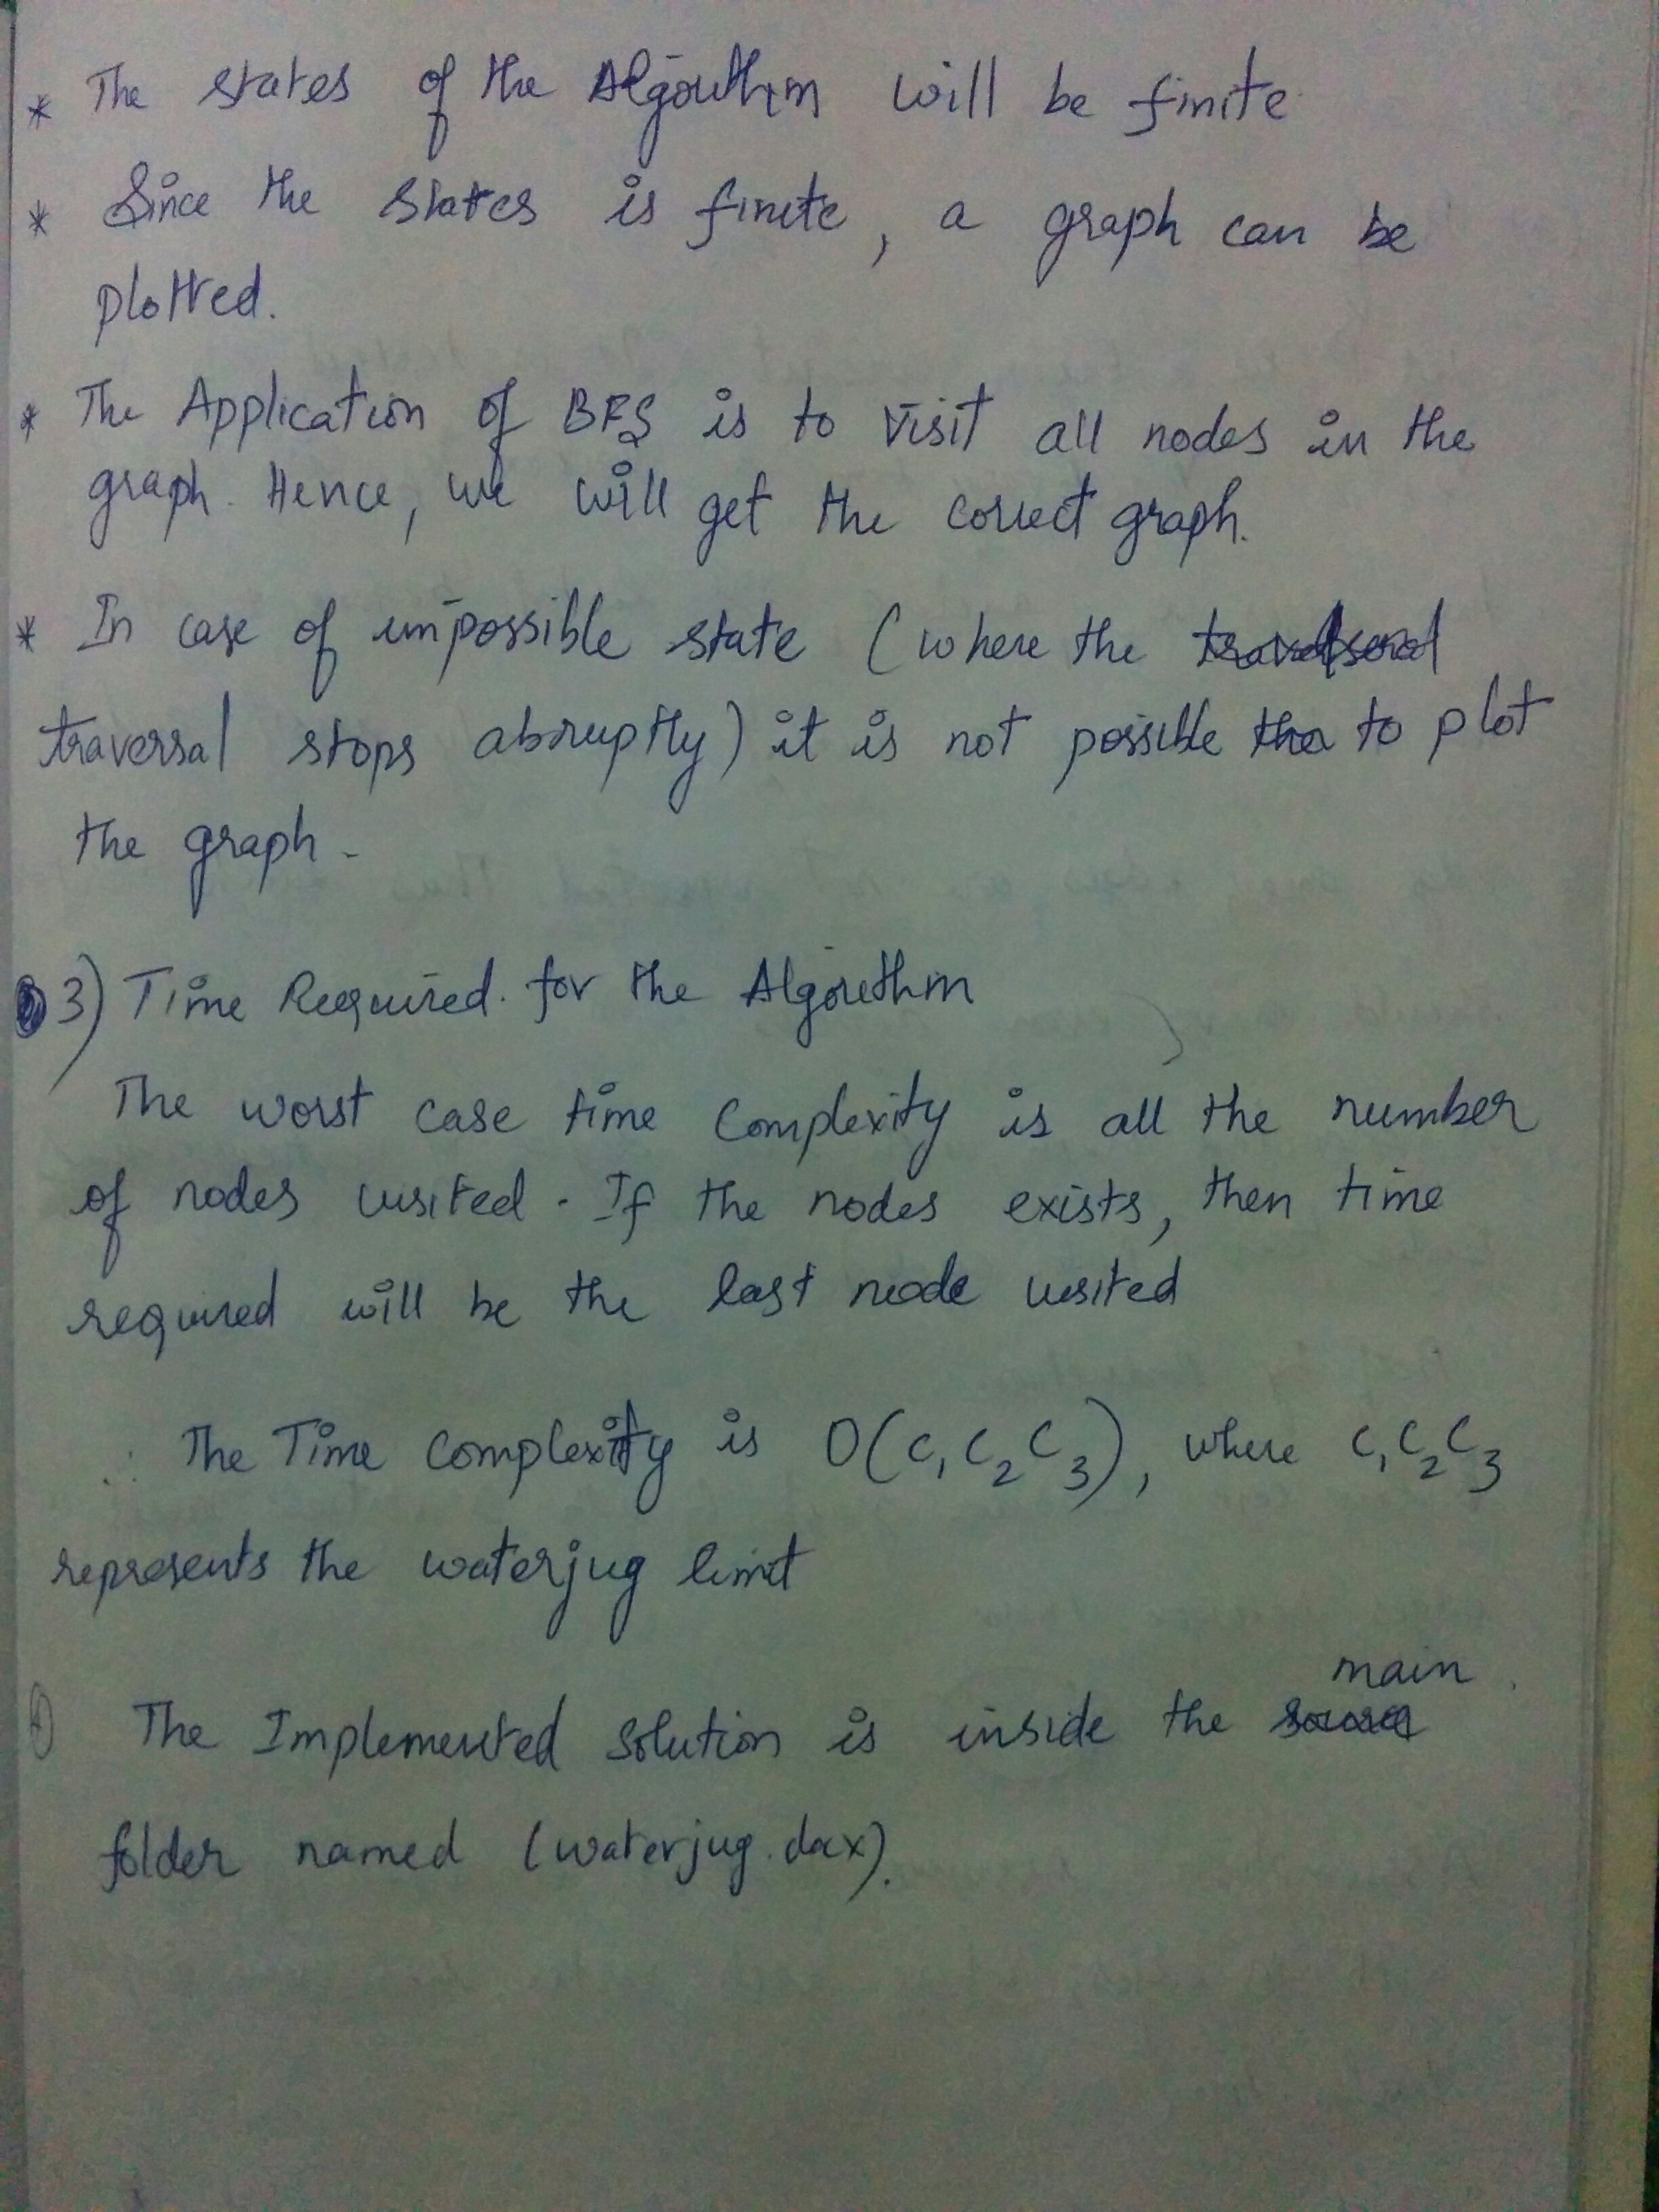 * The states of the Algorithm will be finite
* Since the states is finite, a graph can be
plotted.
* The Application of BFS is to visit all nodes in the
graph. Hence, we will get the correct graph.
* In case of impossible state (where the
traversal stops abruptly) it is not possible to plot
the graph.
3) Time Required for the Algorithm
The worst case time complexity is all the number
of nodes visited. If the nodes exists, then time
required will be the last node visited
∴ The Time Complexity is O(C₁C₂C₃), where C₁C₂C₃
represents the waterjug limit
main
4) The Implemented solution is inside the
folder named (waterjug.dax).